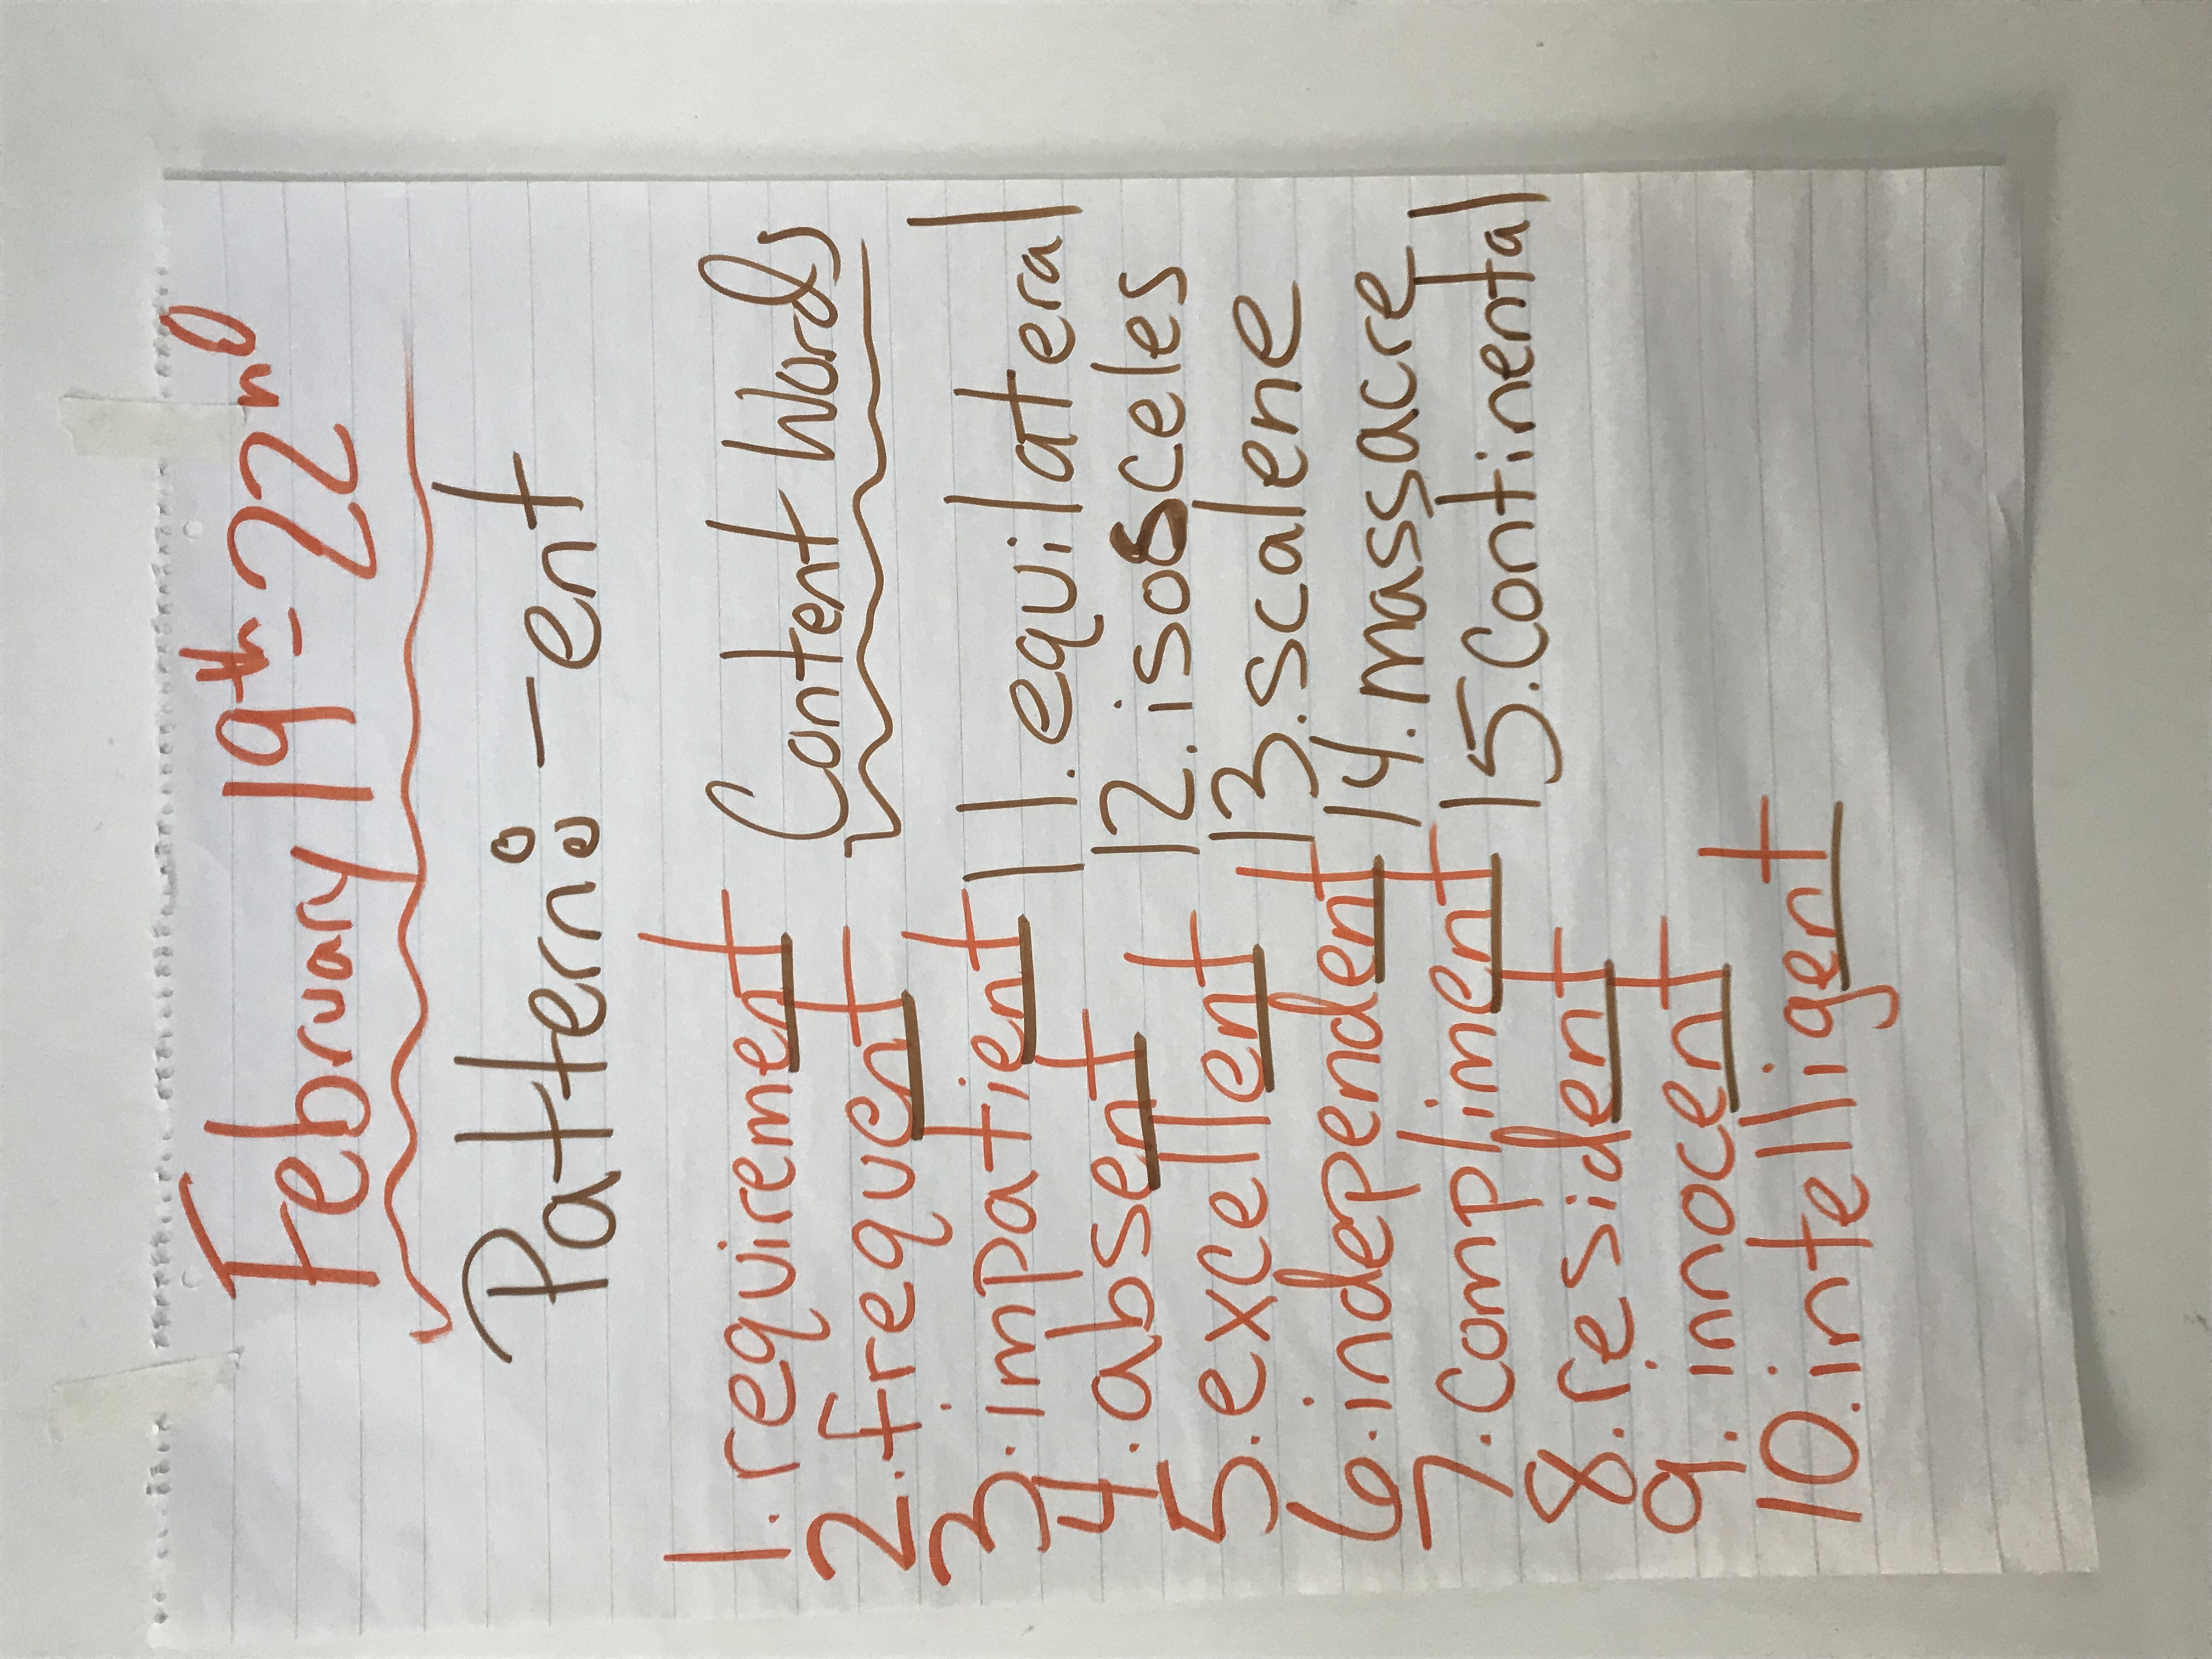 February 19th-22nd
Pattern: -ent
1. requirement
2. frequent
3. impatient
4. absent
5. excellent
6. independent
7. compliment
8. resident
9. innocent
10. intelligent
Content Words
11. equilateral
12. isosceles
13. scalene
14. massacre
15. Continental